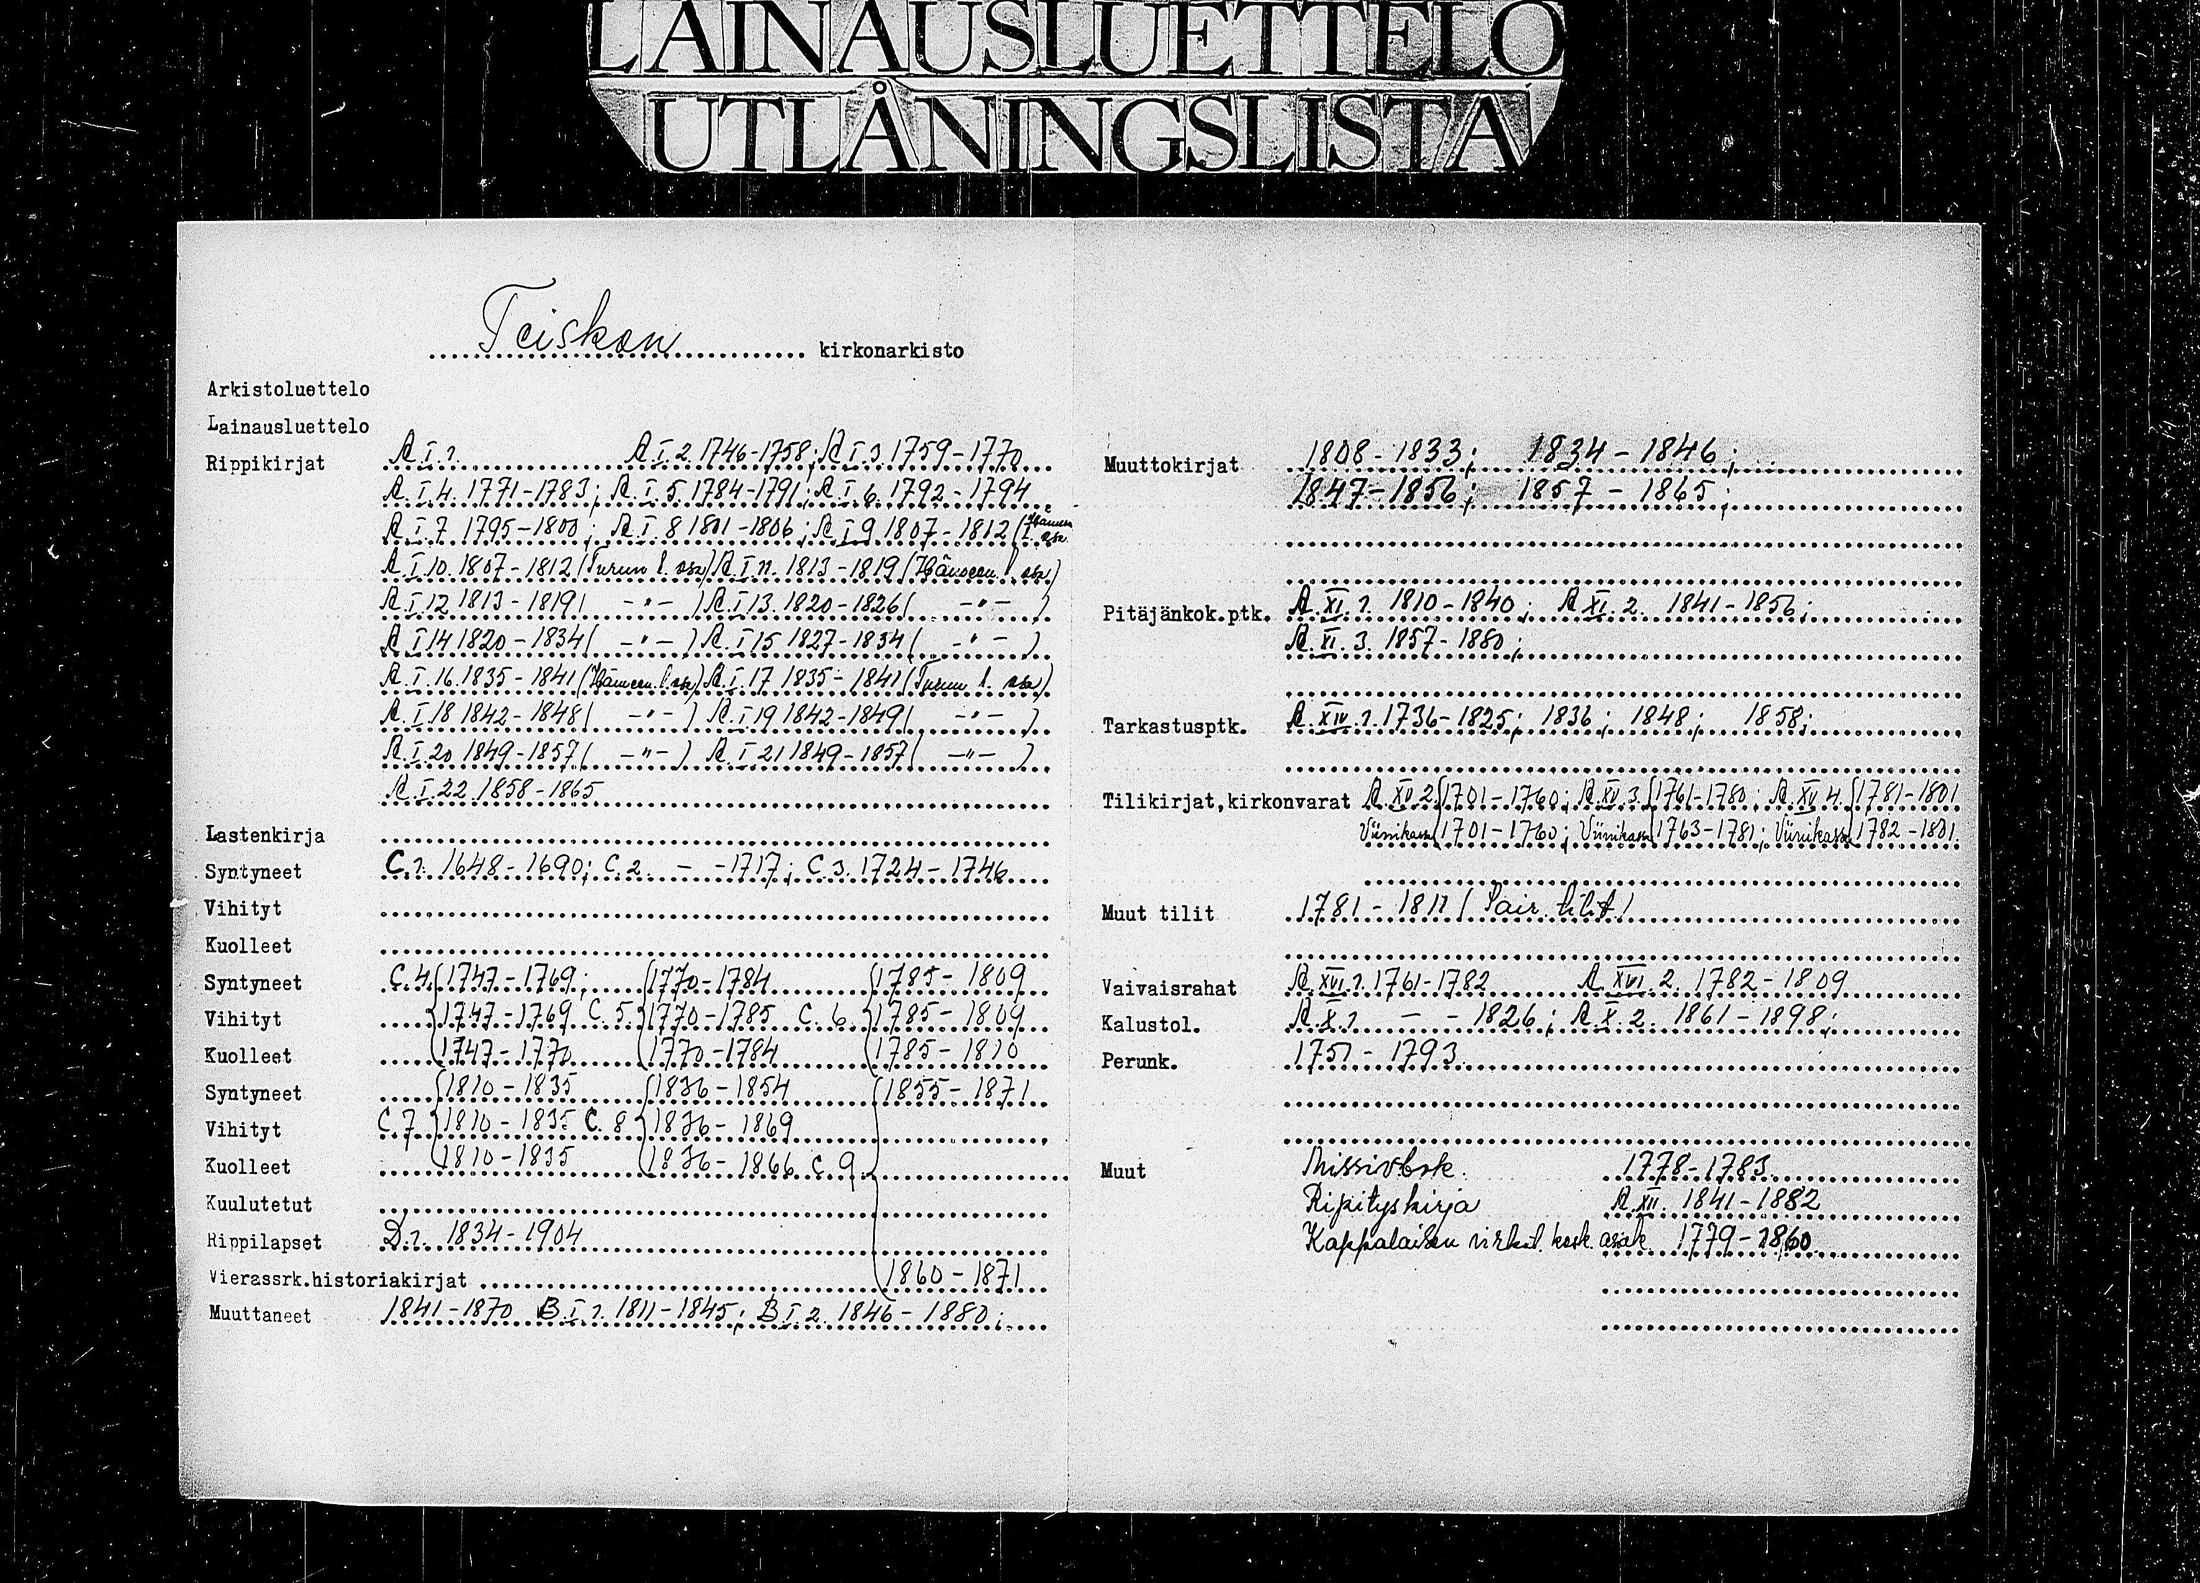 LAINAUSLUETTELO
UTLÅNINGSLISTA
Teiskon kirkonarkisto
Arkistoluettelo
Lainausluettelo
Rippikirjat A.I.1. A.I.2. 1746-1758; A.I.3. 1759-1770
A.I.4. 1771-1783; A.I.5. 1784-1791; A.I.6. 1792-1794
A.I.7 1795-1800; A.I.8 1801-1806; A.I.9 1807-1812 (Hämeen l. osa
A.I.10. 1807-1812 (Turun l. osa) A.I.11. 1813-1819 (Hämeen l. osa)
A.I.12 1813-1819 ( -"- ) A.I.13. 1820-1826 ( -"- )
A.I.14 1820-1834 ( -"- ) A.I.15 1827-1834 ( -"- )
A.I.16. 1835-1841 (Hämeen l. osa) A.I.17 1835-1841 (Turun l. osa)
A.I.18 1842-1848 ( -"- ) A.I.19 1842-1849 ( -"- )
A.I.20 1849-1857 ( -"- ) A.I.21 1849-1857 ( -"- )
A.I.22. 1858-1865
Lastenkirja
Syntyneet C.1. 1648-1690; C.2. - -1717; C.3. 1724-1746
Vihityt
Kuolleet
Syntyneet C.4. 1747-1769; 1770-1784 1785-1809
Vihityt 1747-1769 C.5. 1770-1785 C.6. 1785-1809
Kuolleet 1747-1770 1770-1784 1785-1810
Syntyneet 1810-1835 1836-1854 1855-1871
Vihityt C.7 1810-1835 C.8 1836-1869
Kuolleet 1810-1835 1836-1866 C.9.
Kuulutetut
Rippilapset D.1. 1834-1904
Vierassrk.historiakirjat 1860-1871
Muuttaneet 1841-1870 B.I.1. 1811-1845; B.I.2. 1846-1880;
Muuttokirjat 1808-1833; 1834-1846;
1847-1856; 1857-1865;
Pitäjänkok.ptk. A.XI.1. 1810-1840; A.XI.2. 1841-1856;
A.XI.3. 1857-1880;
Tarkastusptk. A.XIV.1. 1736-1825; 1836; 1848; 1858;
Tilikirjat,kirkonvarat A.XV.2. 1701-1760; A.XV.3. 1761-1780; A.XV.4. 1781-1801
Viinikassa 1701-1760; Viinikassa 1763-1781; Viinikassa 1782-1801.
Muut tilit 1781-1811 (Pair. tilit)
Vaivaisrahat A.XVI.1. 1761-1782 A.XVI.2. 1782-1809
Kalustol. A.X.1. - -1826; A.X.2. 1861-1898;
Perunk. 1751-1793
Muut Missivbok. 1778-1783
Ripityskirja A.XII. 1841-1882
Kappalaisen virkat. kosk. asiak. 1779-1860